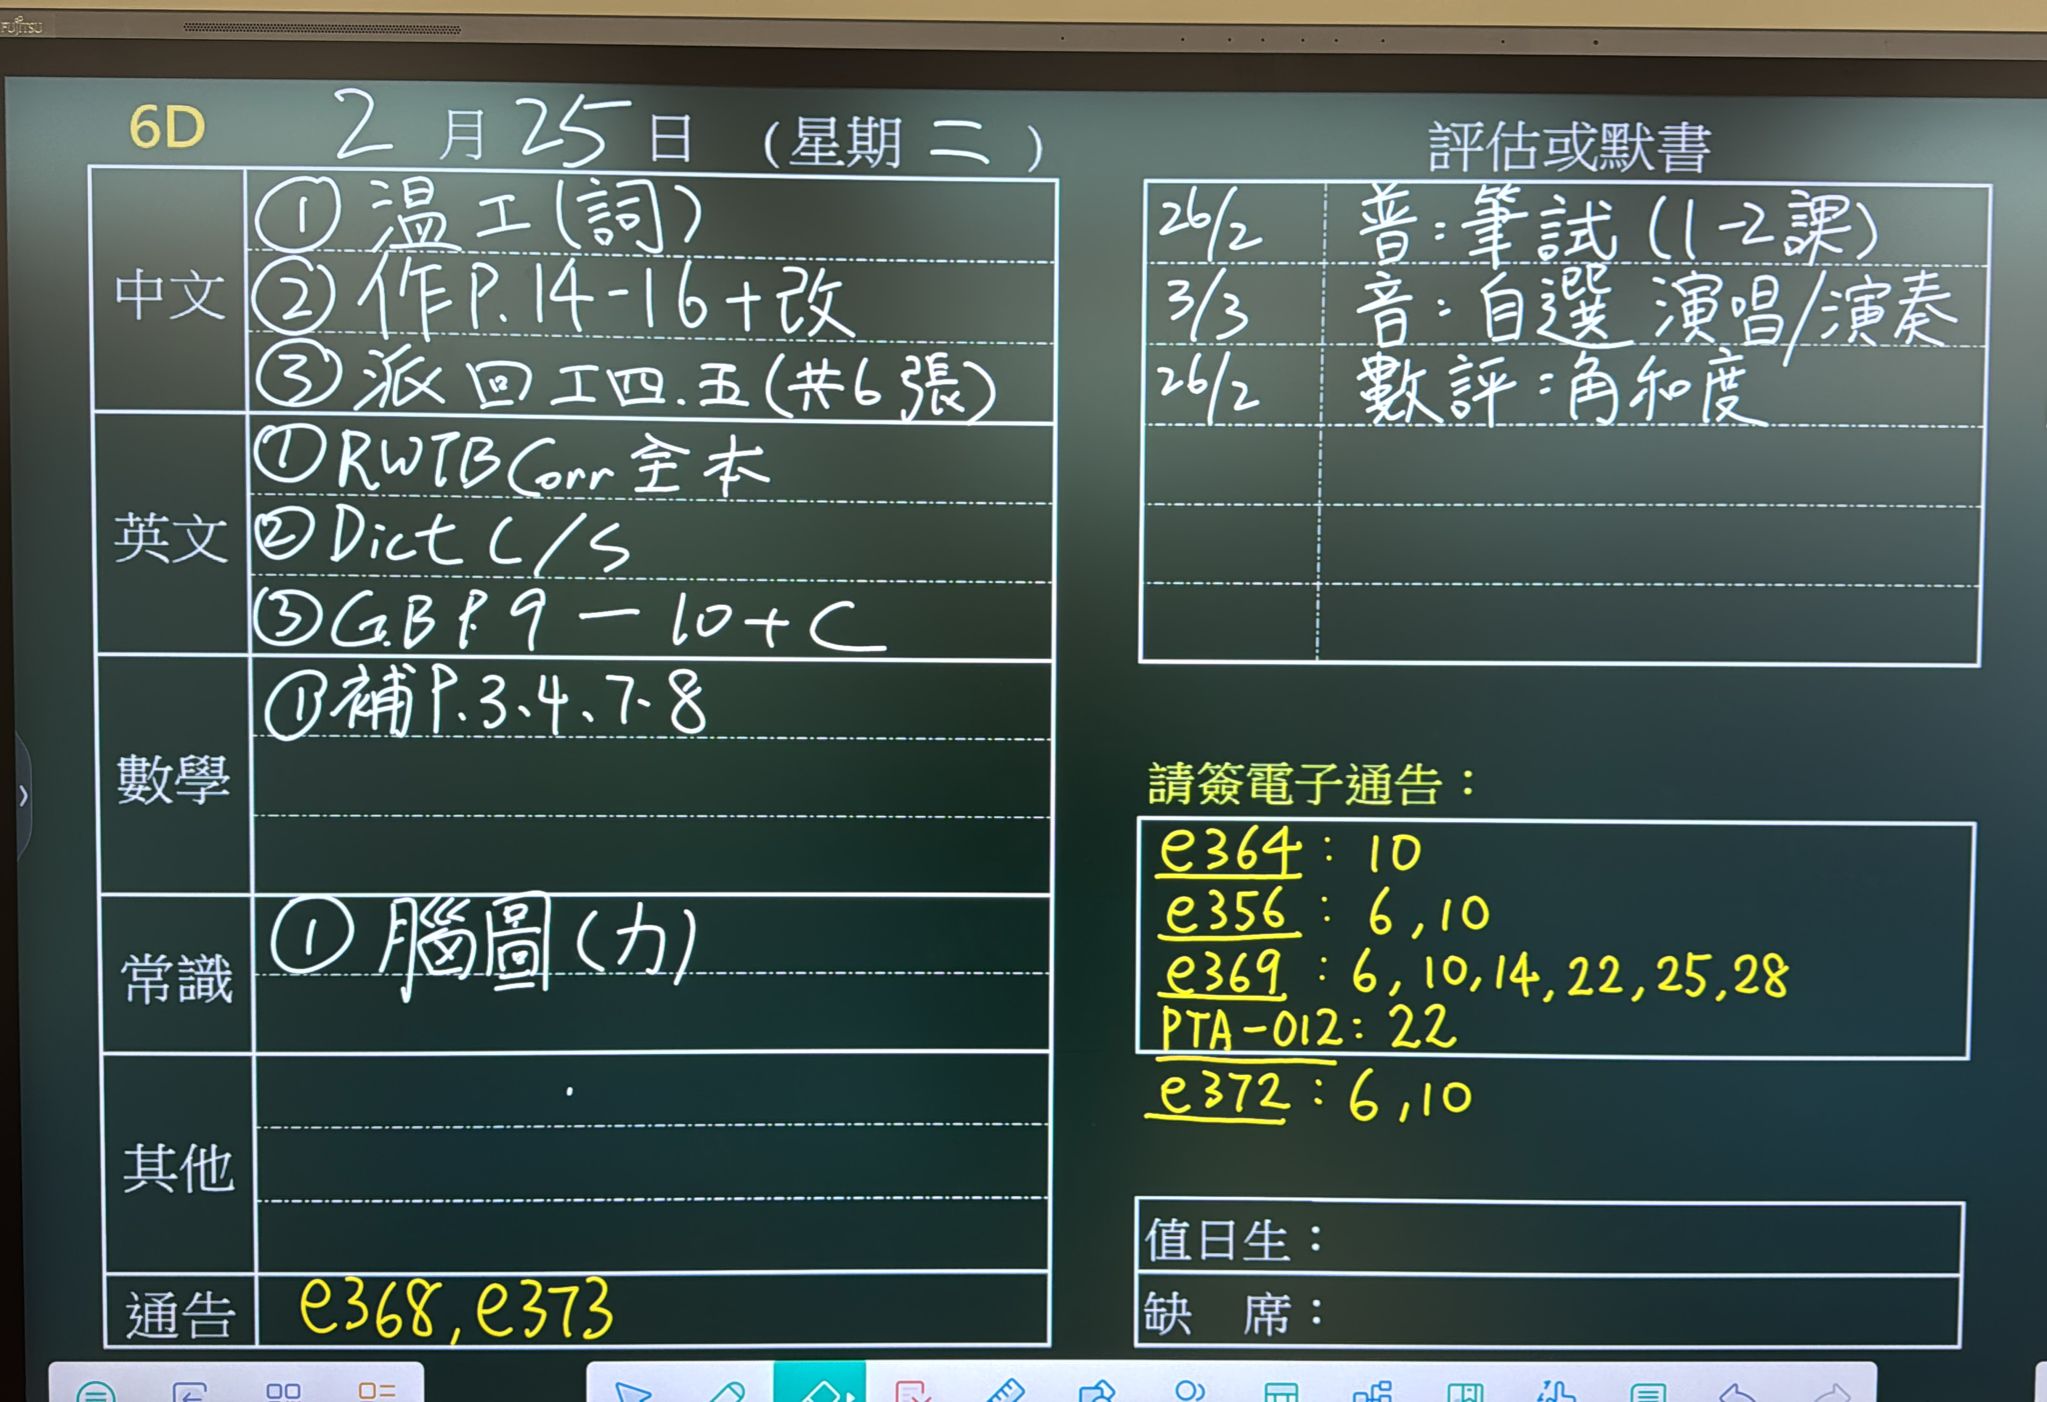 FUJITSU
6D 2月25日 (星期二)
中文
① 温工(詞)
② 作P.14-16+改
③ 派回工四.五(共6張)
英文
① RWTB Corr 全本
② Dict C/S
③ G.B P.9-10+C
數學
① 補P.3、4、7、8
常識
① 腦圖(力)
其他
通告 e368, e373
評估或默書
26/2 普:筆試(1-2課)
3/3 音:自選 演唱/演奏
26/2 數評:角和度
請簽電子通告:
e364: 10
e356: 6,10
e369: 6,10,14,22,25,28
PTA-012: 22
e372: 6,10
值日生:
缺 席: